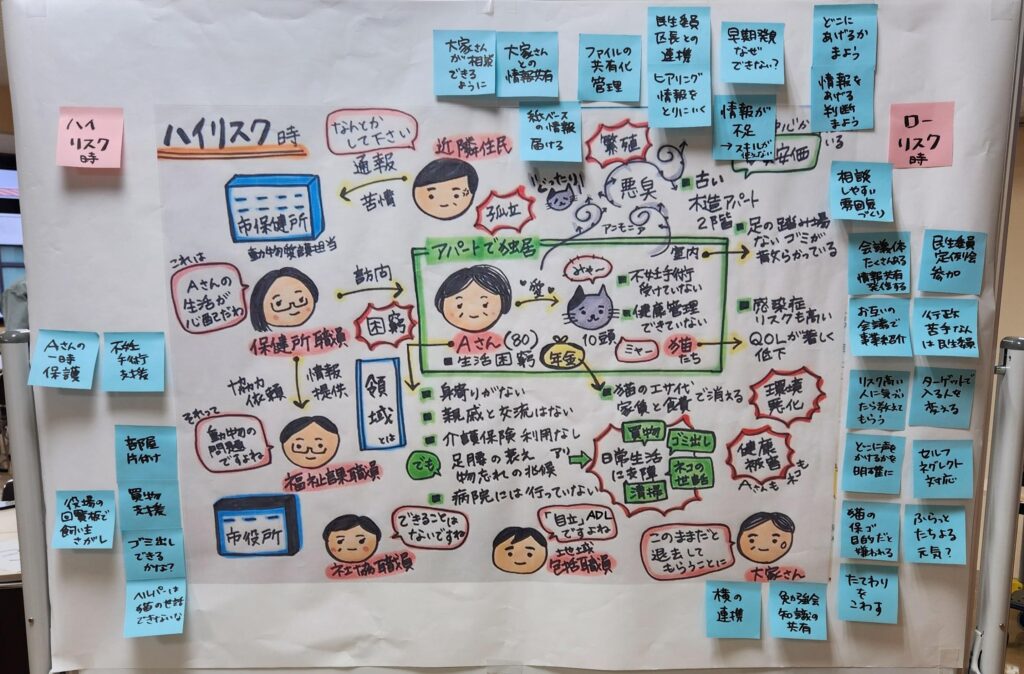 大家さん
が相談
できる
ように
大家さん
との
情報共有
ファイルの
共有化
管理
民生委員
区長との
連携
ヒアリング
情報を
とりにいく
早期発見
なぜ
できない？
どこに
あげるか
まよう
情報を
あげる
判断
まよう
紙ベースの情報
届ける
情報が
不足
→スキルが
使えない
ハイ
リスク
時
ロー
リスク
時
ハイリスク時
なんとか
して下さい
通報
苦情
近隣住民
繁殖
孤立
じっとり
悪臭
アンモニア
安価
いる
■古い
木造アパート
2階
相談
しやすい
雰囲気
づくり
市保健所
動物愛護担当
アパートで独居
室内
■足の踏み場
ない ゴミが
散らかっている
会議体
たくさんある
情報共有
発信する
民生委員
定例会
参加
これは
Aさんの
生活が
心配だわ
訪問
保健所職員
困窮
愛
みゃー
10頭
■不妊手術
受けていない
■健康管理
できていない
ミャー
猫
たち
■感染症
リスクも高い
■QOLが著しく
低下
お互いの
会議で
事業紹介
行政
苦手なん
は民生委員
■Aさん(80)
■生活困窮
年金
Aさんの
一時
保護
不妊
手術
支援
協力
依頼
情報
提供
領域
とは
■身寄りがない
■親戚と交流はない
■介護保険利用なし
でも
足腰の衰え アリ
物忘れの兆候
■病院には行っていない
■猫のエサ代や
家賃と食費で消える
環境
悪化
リスク高い
人に気づい
たら教えて
もらう
ターゲットで
入る人を
考える
それって
動物の
問題
ですよね
福祉課職員
日常生活
に支障
買物
ゴミ出し
ネコの
世話
清掃
健康
被害
Aさんも
ネコも
どこに声を
かけるかを
明確に
セルフ
ネグレクト
対応
部屋
片付け
役場の
回覧板で
飼い主
さがし
買物
支援
ゴミ出し
できる
かな？
ヘルパーは
猫の世話
できないな
市役所
できることは
ないですね
社協職員
「自立」ADL
ですよね
地域
包括職員
このままだと
退去して
もらうことに
大家さん
猫の
保ゴ
目的だと
嫌われる
ふらっと
たちよる
元気？
たてわり
を
こわす
横の
連携
勉強会
知識の
共有